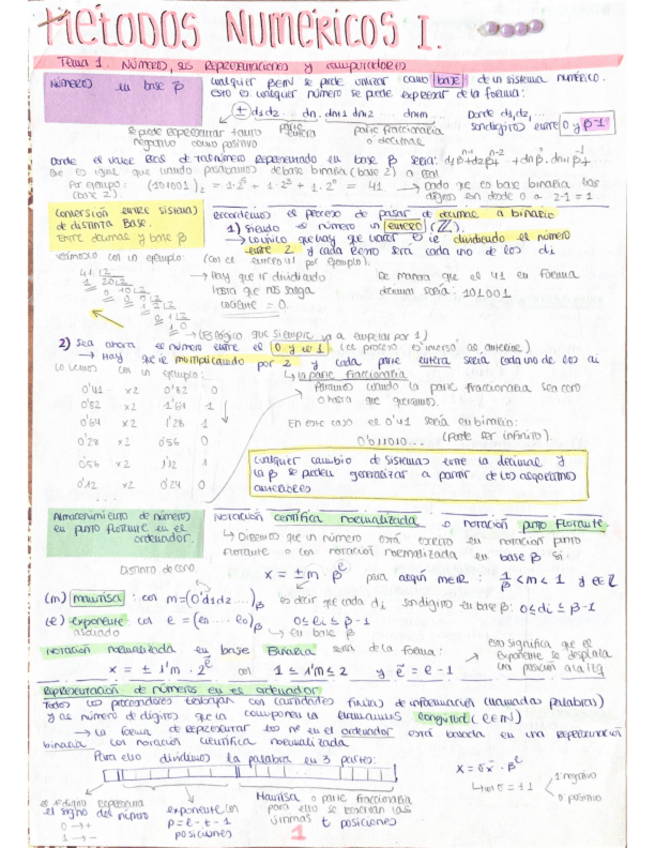 MÉTODOS NUMÉRICOS I.
Tema 1. NÚMEROS, sus Representaciones y computadores
NÚMEROS en base β
Cualquier β∈ℕ se puede utilizar como base de un sistema numérico.
Esto es cualquier número se puede expresar de la forma:
± d1d2 ... dn. dn+1 dn+2 ... dn+m...
Donde d1, d2, ...
son dígitos entre 0 y β-1
se puede representar tanto
negativo como positivo
parte
entera
parte fraccionaria
o decimal
Donde el valor de tal número representado en base β sería: d1β^n-1 + d2β^n-2 + ... + dnβ^0 + dn+1β^-1 + ...
que es igual que cuando pasábamos de base binaria (base 2) a
Por ejemplo: (101001)2 = 1·2^5 + 1·2^3 + 1·2^0 = 41 → dado que es base binaria los
(base 2).
dígitos son desde 0 a 2-1 = 1
Conversión entre sistemas
de distinta Base.
Entre decimal y base β
recordemos el proceso de pasar de decimal a binario
1) Siendo el número un entero (ℤ).
→ Lo único que hay que hacer es ir dividiendo el número
entre 2 y cada resto será cada uno de los di
veámoslo con un ejemplo: (con el entero 41 por ejemplo).
41 |2
1 20 |2
0 10 |2
0 5 |2
1 2 |2
0 1 |2
1 0
→ Hay que ir dividiendo
hasta que nos salga
cociente = 0.
De manera que el 41 en forma
decimal sería: 101001
→ (es lógico que siempre va a empezar por 1)
2) Sea ahora el número entre el 0 y el 1 (el proceso es inverso al anterior)
→ Hay que ir multiplicando por 2 y cada parte entera sería cada uno de los ai
↳ la parte fraccionaria
Lo vemos con un ejemplo:
0'41 x2 0'82 0
0'82 x2 1'64 1
0'64 x2 1'28 1
0'28 x2 0'56 0
0'56 x2 1'12 1
0'12 x2 0'24 0
...
Paramos cuando la parte fraccionaria sea cero
o hasta que queramos.
En este caso el 0'41 sería en binario:
0'011010... (puede ser infinito).
Cualquier cambio de sistemas entre la decimal y
la β se pueden generalizar a partir de los algoritmos
anteriores
Almacenamiento de números
en punto flotante en el
ordenador.
NOTACIÓN científica normalizada o notación punto flotante
↳ Diremos que un número está escrito en notación punto
flotante o con notación normalizada en base β si:
Distinto de cero
x = ± m · β^e para aquí m∈ℝ : 1/β < m < 1 y e∈ℤ
(m) mantisa : con m = (0'd1d2 ...)β es decir que cada di son dígitos en base β: 0 ≤ di ≤ β-1
(e) exponente : con e = (en ... e0)β 0 ≤ ei ≤ β-1
asociado
↳ en base β
Notación normalizada en base Binaria será de la forma:
x = ± 1'm · 2^ē con 1 ≤ 1'm ≤ 2 y ē = e - 1
→ esto significa que el
exponente se desplaza
una posición a la izq
Representación de números en el ordenador
Todos los procesadores trabajan con cantidades finitas de información (llamadas palabras)
y al número de dígitos que la componen la llamamos longitud (ℓ∈ℕ)
→ La forma de representar los nº en el ordenador está basada en una representación
binaria con notación científica normalizada
Para ello dividimos la palabra en 3 partes:
x = σx̄ · β^e
↳ con σ = ±1
1: negativo
0: positivo
el 1º dígito representa
el signo del número
0 → +
1 → -
exponente con
p = ℓ - t - 1
posiciones
Mantisa o parte fraccionaria
para ello se reservan las
últimas t posiciones
1